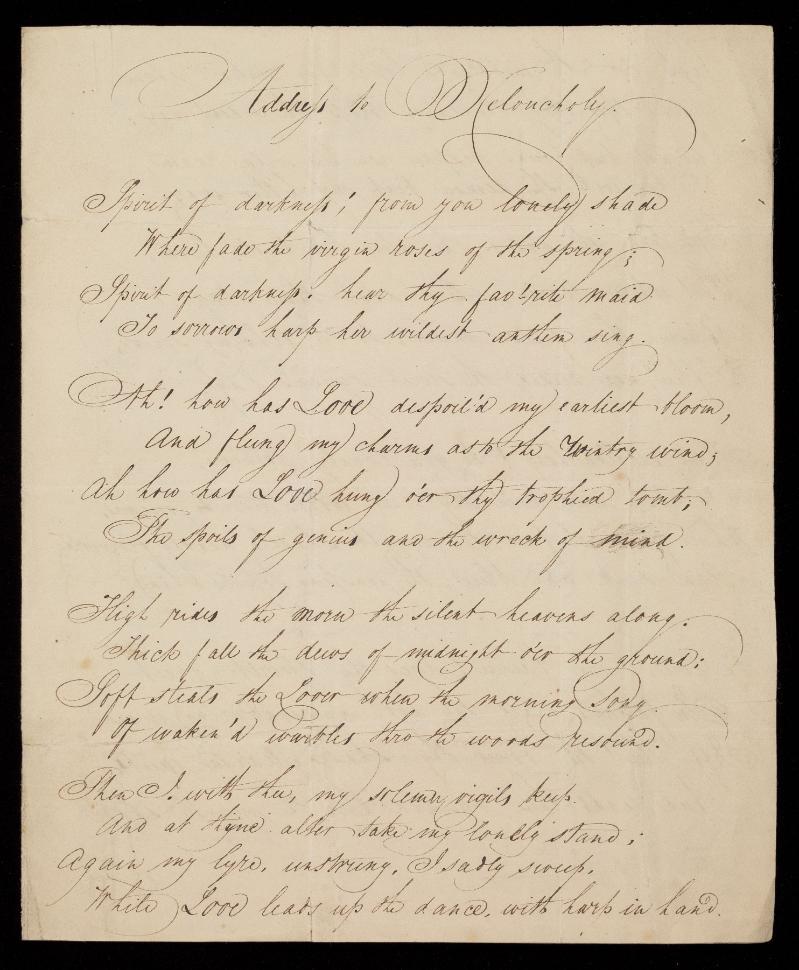 Address to Meloncholy.
Spirit of darkness! from yon lonely shade
Where fade the virgin roses of the spring;
Spirit of darkness. hear thy fav!rite maid
To sorrows harp her wildest anthem sing.
Ah! how has Love despoil'd my earliest bloom,
And flung my charms as to the Wintry wind;
Ah how has Love hung o'er thy trophied tomb;
The spoils of genius and the wreck of mind.
High rides the moon the silent heavens along.
Thick fall the dews of midnight o'er the ground;
Soft steals the Lover when the morning Song
Of waken'd warbles thro the woods resound.
Then I. with thee, my solemn vigils keep.
And at thyne alter take my lonely stand;
Again my lyre, unstrung, I sadly sweep,
While Love leads up the dance. with harp in hand.